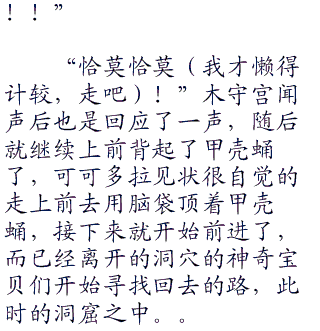 ！！”
“恰莫恰莫（我才懒得
计较，走吧）！”木守宫闻
声后也是回应了一声，随后
就继续上前背起了甲壳蛹
了，可可多拉见状很自觉的
走上前去用脑袋顶着甲壳
蛹，接下来就开始前进了，
而已经离开的洞穴的神奇宝
贝们开始寻找回去的路，此
时的洞窟之中。。